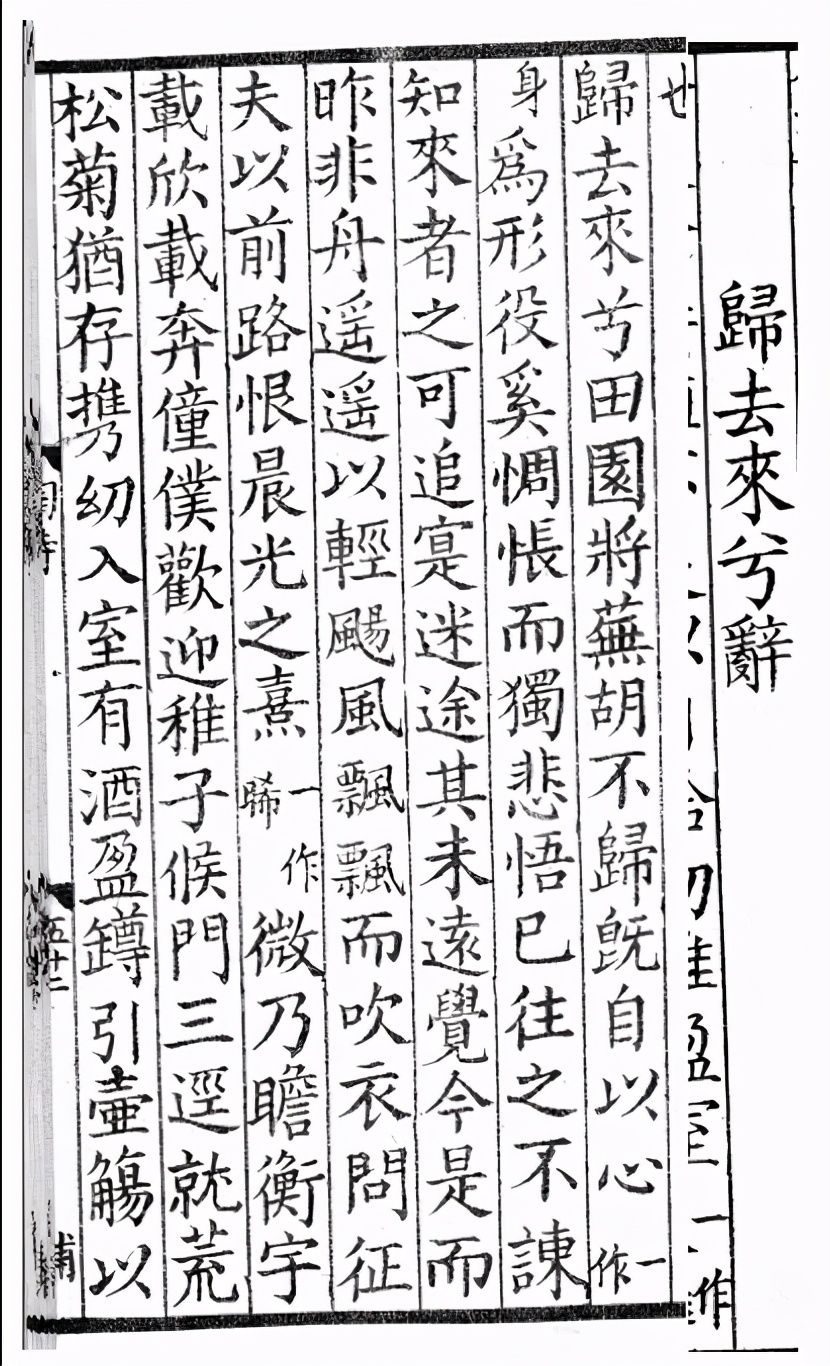 歸去來兮辭
也
歸去來兮田園將蕪胡不歸旣自以心一作
身爲形役奚惆悵而獨悲悟已往之不諫
知來者之可追寔迷途其未遠覺今是而
昨非舟遥遥以輕颺風飄飄而吹衣問征
夫以前路恨晨光之熹一作晞微乃瞻衡宇
載欣載奔僮僕歡迎稚子候門三逕就荒
松菊猶存携幼入室有酒盈罇引壷觴以
五十二